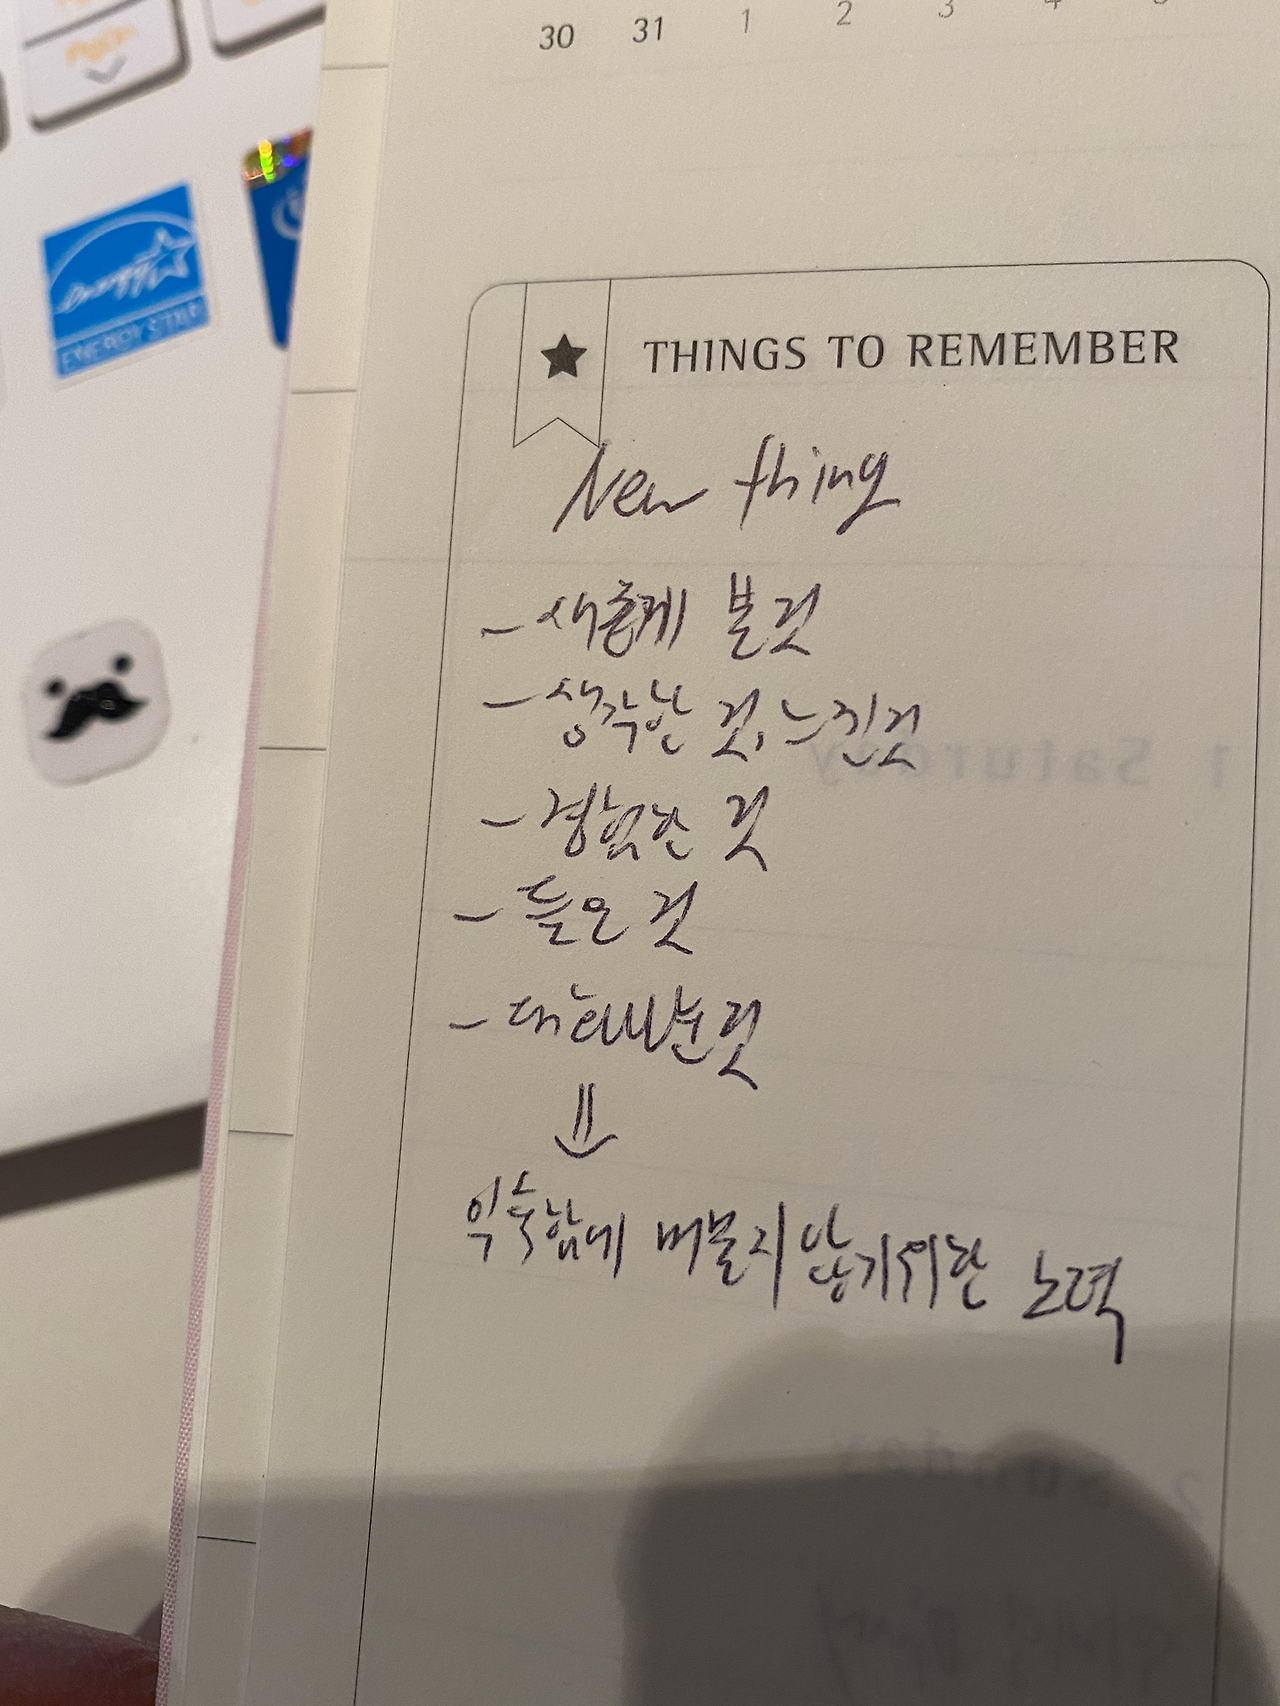 30 31 1 2 3 4
ENERGY STAR
THINGS TO REMEMBER
New thing
- 새롭게 본 것
- 생각한 것, 느낀것
- 경험한 것
- 들은 것
- 해본것
⇓
익숙함에 머물지 않기위한 노력
1 Saturday
2 Sunday